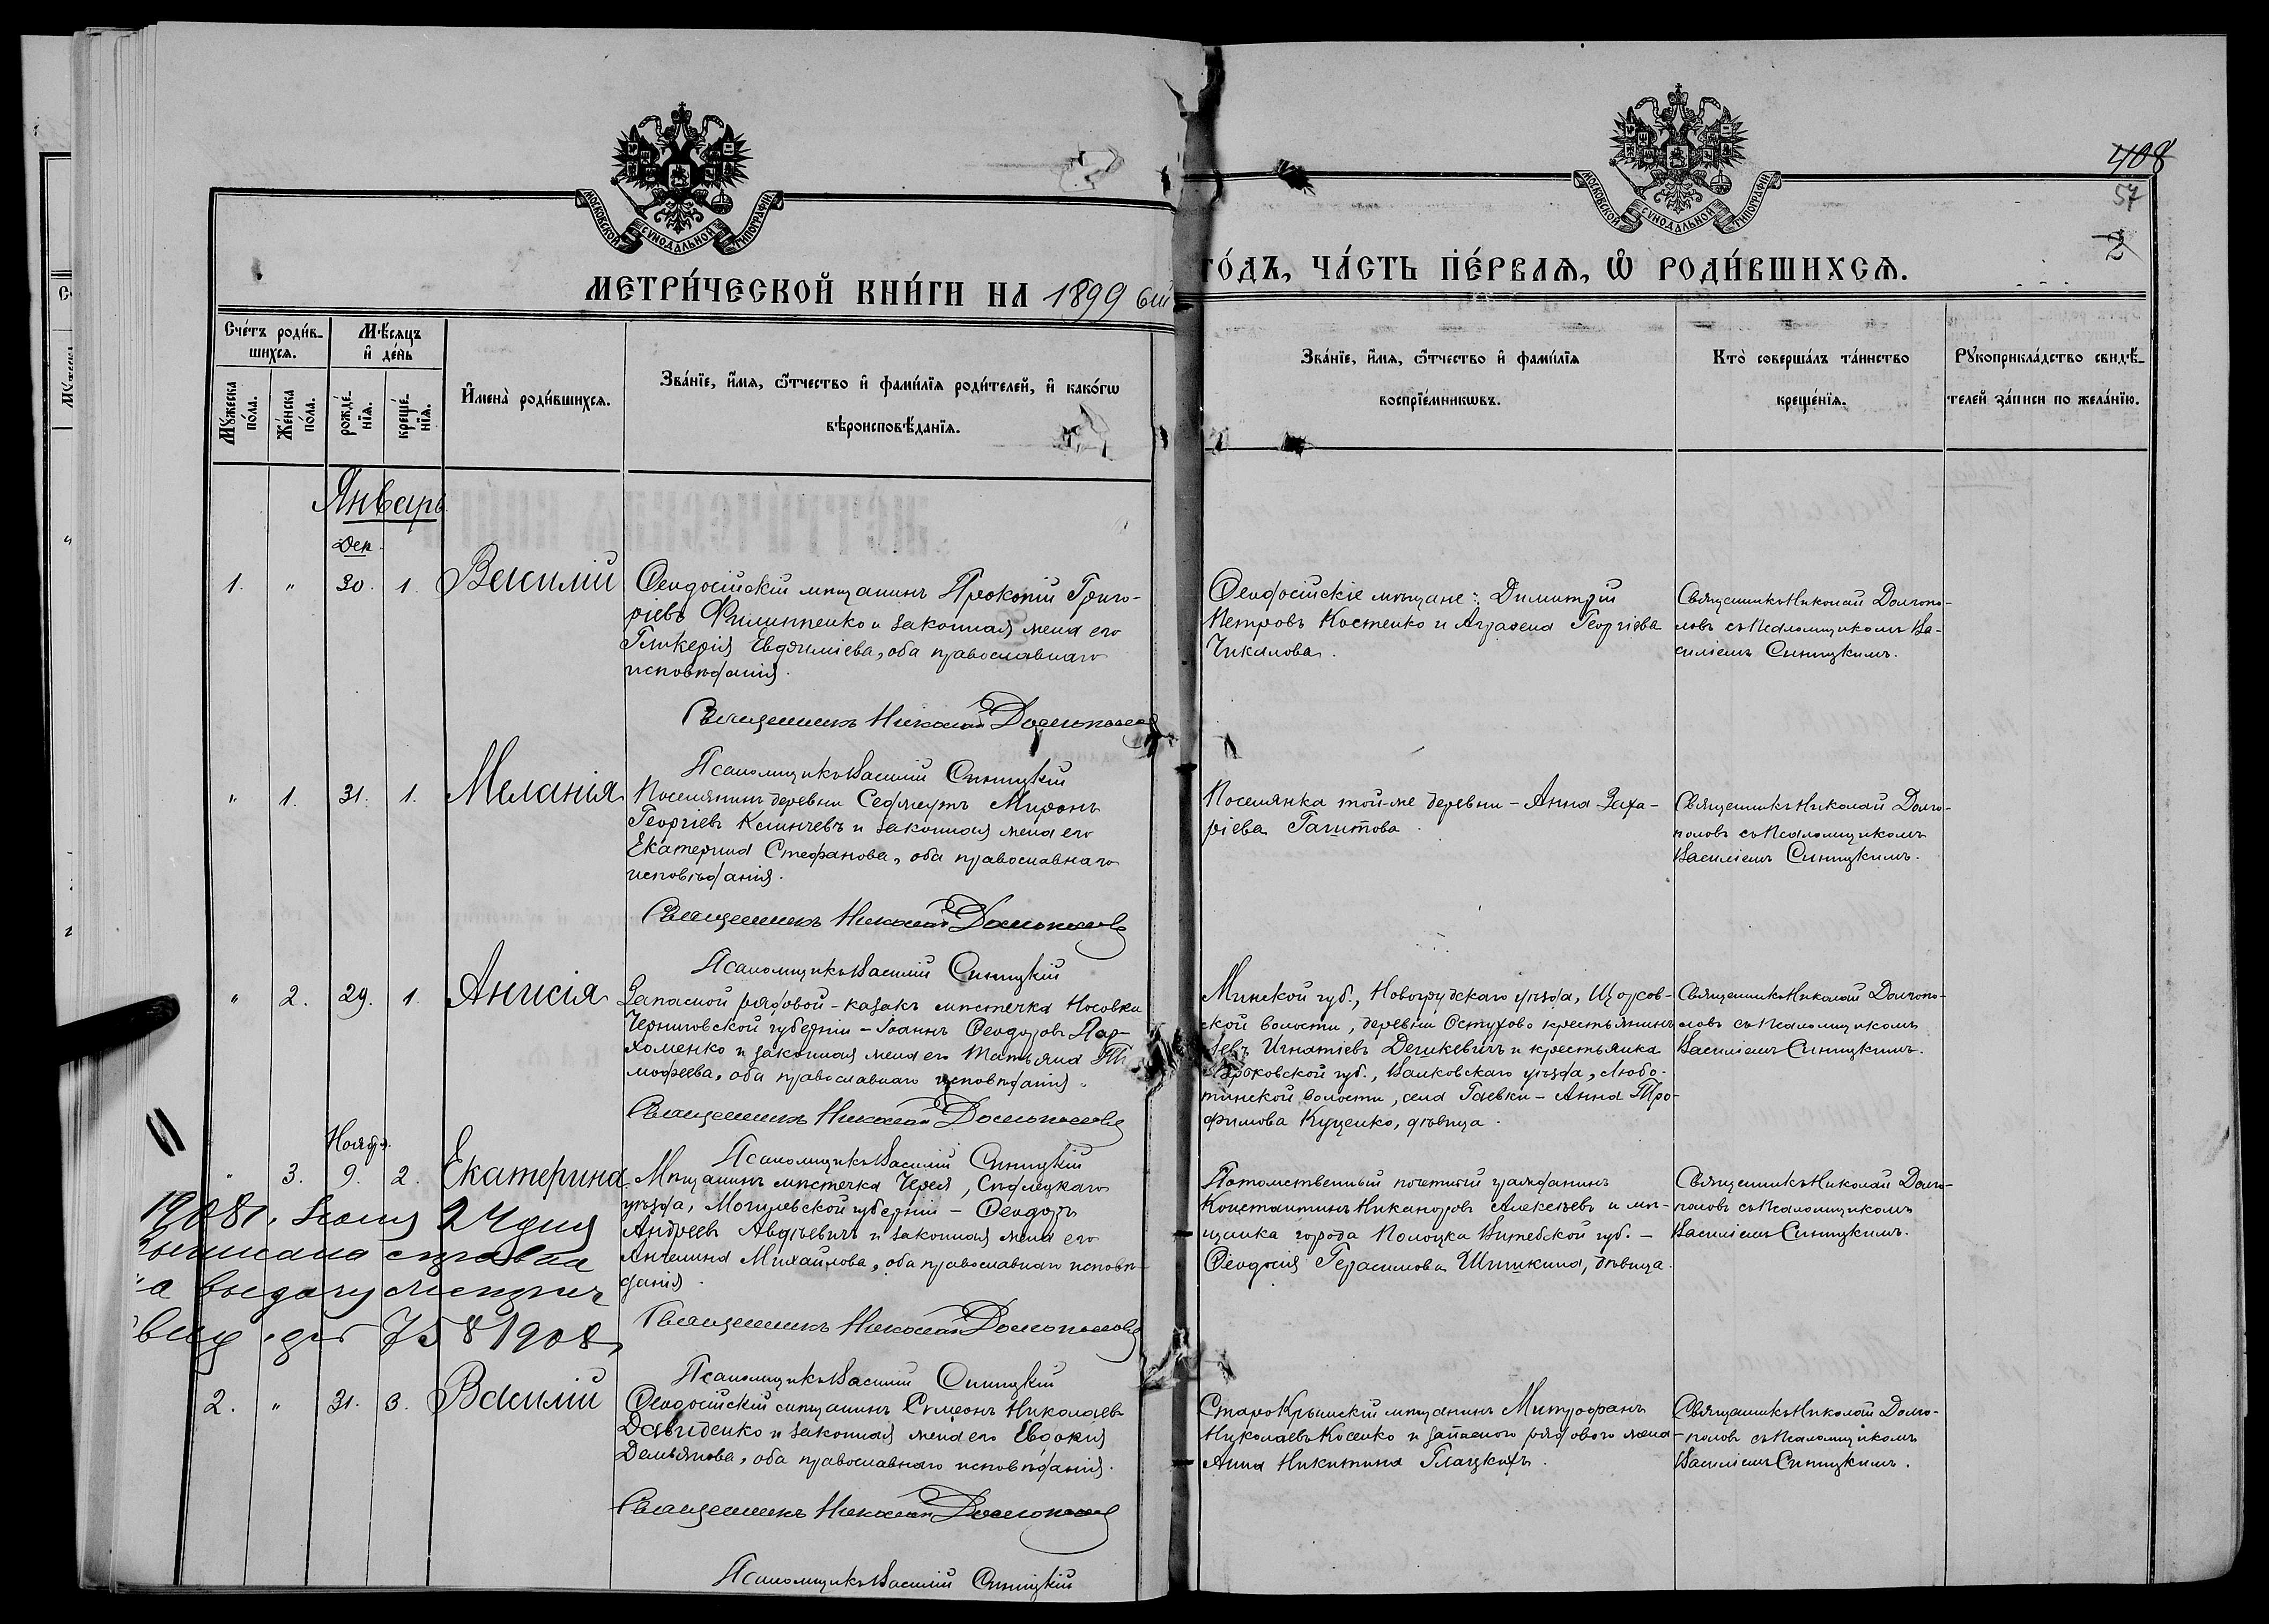 МОСКОВСКОЙ СѴНОДАЛЬНОЙ ТИПОГРАФІИ.
МОСКОВСКОЙ СѴНОДАЛЬНОЙ ТИПОГРАФІИ.
408
57
2
МЕТРИ́ЧЕСКОЙ КНИ́ГИ НА 1899 ый
ГО́ДЪ, ЧА́СТЬ ПЕ́РВАЯ, Ѡ РОДИ́ВШИХСЯ.
Сче́тъ роди́в-
шихся.
Мѣ́сяцъ
и҆ де́нь
Мꙋ́жеска
по́ла.
Же́нска
по́ла.
рожде́-
нїя.
креще́-
нїя.
И҆мена̀ роди́вшихся.
Зва́нїе, и҆́мя, ѻ҆́тчество и҆ фами́лїя роди́телей, и҆ како́гѡ
вѣроисповѣ́данїя.
Зва́нїе, и҆́мя, ѻ҆́тчество и҆ фами́лїя
воспрїе́мникѡвъ.
Кто̀ соверша́лъ та́инство
креще́нїя.
Рꙋкоприкла́дство свидѣ́-
телей за́писи по жела́нїю.
Январь
Дек.
1. " 30. 1. Василій
Ѳеодосійскій мѣщанинъ Прокопій Григо-
ріевъ Филиппенко и законная жена его
Гликерія Евѳиміева, оба православнаго
исповѣданія.
Священникъ Николай Долгополовъ
Псаломщикъ Василій Синицкій
Ѳеодосійскіе мѣщане: Димитрій
Петровъ Костенко и Агрипена Георгіева
Чикалова.
Священникъ Николай Долгопо-
ловъ съ псаломщикомъ Ва-
силіемъ Синицкимъ.
" 1. 31. 1. Меланія
Поселянинъ деревни Сеймеутъ Миронъ
Георгіевъ Клинчевъ и законная жена его
Екатерина Стефанова, оба православнаго
исповѣданія.
Священникъ Николай Долгополовъ
Псаломщикъ Василій Синицкій
Поселянка той-же деревни - Анна Заха-
ріева Гагитова.
Священникъ Николай Долго-
половъ съ псаломщикомъ
Василіемъ Синицкимъ.
" 2. 29. 1. Анисія
Запасной рядовой - казакъ мѣстечка Носовки
Черниговской губерніи - Іоаннъ Ѳеодоровъ Пар-
хоменко и законная жена его Татьяна Ти-
моѳеева, оба православнаго исповѣданія.
Священникъ Николай Долгополовъ
Псаломщикъ Василій Синицкій
Минской губ., Новогрудскаго уѣзда, Щорсов-
ской волости, деревни Остухово крестьянинъ
Игнатіевъ Дешкевичъ и крестьянка
Харьковской губ., Валковскаго уѣзда, Любо-
тинской волости, села Гаевки - Анна Тро-
фимова Куценко, дѣвица.
Священникъ Николай Долгопо-
ловъ съ псаломщикомъ
Василіемъ Синицкимъ.
Ноябр.
" 3. 9. 2. Екатерина
Мѣщанинъ мѣстечка Черея, Сѣнненскаго
уѣзда, Могилевской губерніи - Ѳеодоръ
Андреевъ Авдѣевичъ и законная жена его
Ангелина Михайлова, оба православнаго исповѣ-
данія.
Священникъ Николай Долгополовъ
Псаломщикъ Василій Синицкій
Потомственный почетный гражданинъ
Константинъ Никаноровъ Алексѣевъ и мѣ-
щанка города Полоцка Витебской губ. -
Ѳеодосія Герасимова Шишкина, дѣвица.
Священникъ Николай Долго-
половъ съ псаломщикомъ
Василіемъ Синицкимъ.
1908 г. Іюня 24 дня
выписана справка
на выдачу метрич
свид. дѣло 758 1908
2. " 31. 3. Василій
Ѳеодосійскій мѣщанинъ Симеонъ Николаевъ
Давиденко и законная жена его Евдокія
Демьянова, оба православнаго исповѣданія.
Священникъ Николай Долгополовъ
Псаломщикъ Василій Синицкій
Старокрымскій мѣщанинъ Митрофанъ
Николаевъ Косенко и запаснаго рядового жена
Анна Никитина Гладкихъ.
Священникъ Николай Долго-
половъ съ псаломщикомъ
Василіемъ Синицкимъ.